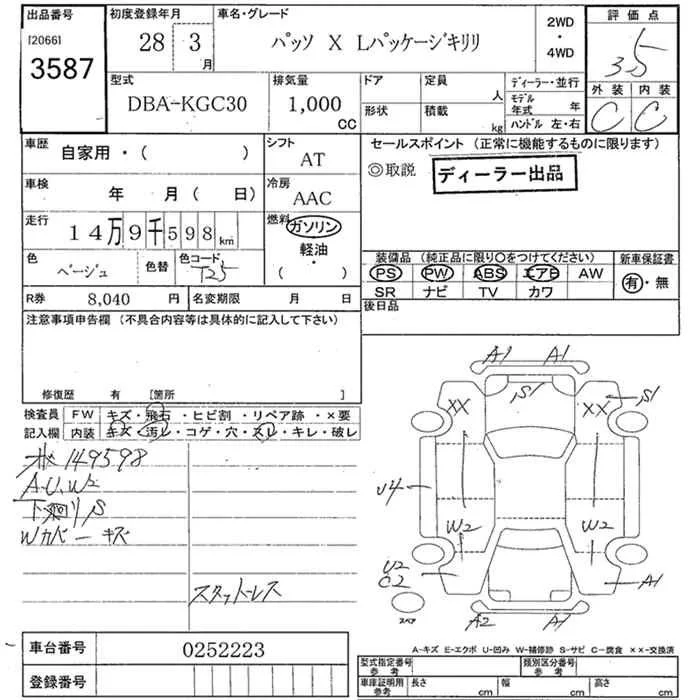 出品番号
[2066]
3587
初度登録年月
28 3 月
車名・グレード
パッソ X Lパッケージキリリ
2WD
・
4WD
評価点
3.5
外装 内装
C C
型式
DBA-KGC30
排気量
1,000 CC
ドア
形状
定員 人
積載 kg
ディーラー・並行
モデル年式 年
ハンドル 左・右
車歴
自家用・( )
シフト
AT
車検
年 月 ( 日)
冷房
AAC
走行
14万9千598 km
燃料
ガソリン
軽油
・
( )
色
ベージュ
色替
色コード
T25
R券 8,040 円
名変期限 月 日
セールスポイント (正常に機能するものに限ります)
◎取説
ディーラー出品
装備品 (純正品に限り○をつけてください)
PS PW ABS エアB AW
SR ナビ TV カワ
新車保証書
有・無
後日品
注意事項申告欄 (不具合内容等は具体的に記入して下さい)
修復歴 有 [箇所 ]
検査員
記入欄
FW キズ・飛石・ヒビ割・リペア跡・×要
内装 キズ・汚レ・コゲ・穴・スレ・キレ・破レ
149598
A.U.W2
下廻りS
Wカバーキズ
スタットレス
A1 A1
S1
XX XX S1
U4
W2 W2
U2
C2
A1
スペア
A2 A1
A-キズ E-エクボ U-凹み W-補修跡 S-サビ C-腐食 ××-交換済
車台番号 0252223
登録番号
型式指定番号
参考
類別区分番号
参考
車庫証明用
参考
長さ cm
幅 cm
高さ cm